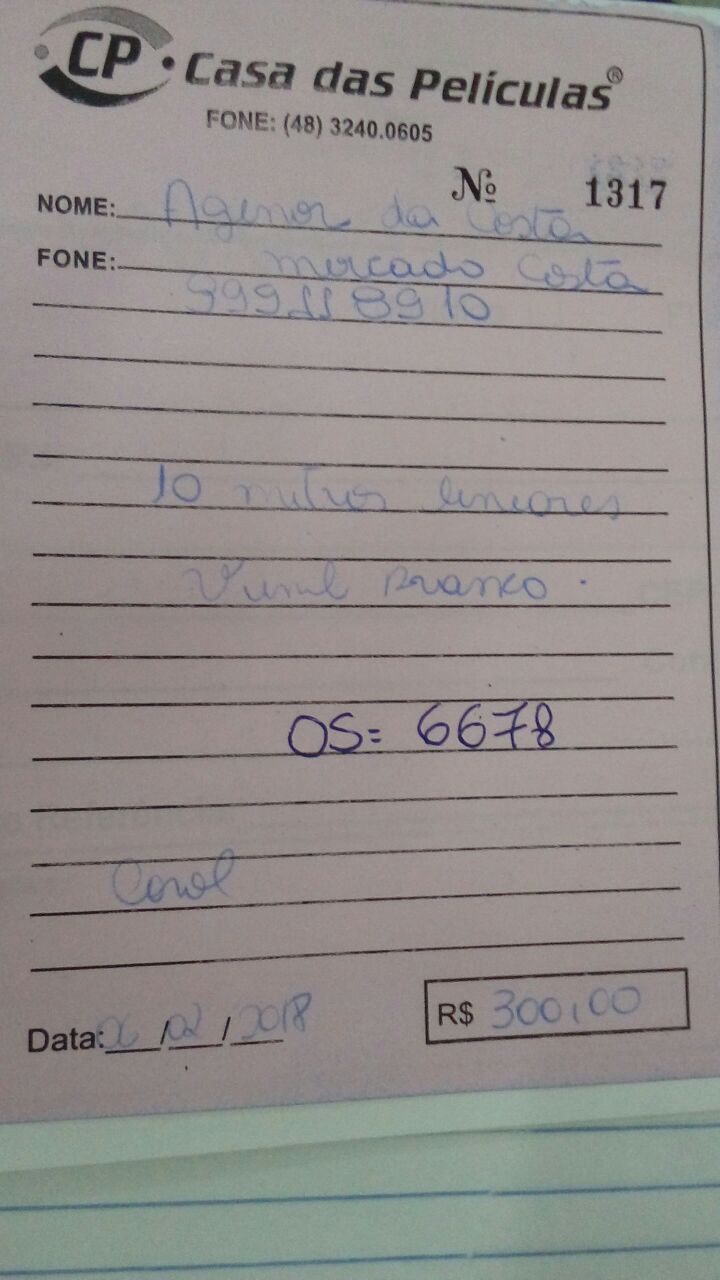 CP Casa das Películas®
FONE: (48) 3240.0605
Nº 1317
NOME: Agenor da Costa
FONE: mercado Costa
999118910
10 metros lineares
Vinil Branco.
OS= 6678
Carol
Data: 06/02/2018
R$ 300,00